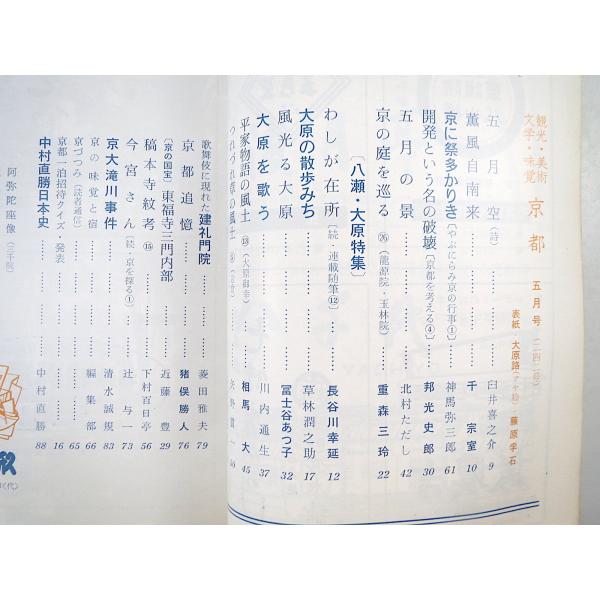 観光・美術
文学・味覚
京都
五月号（二四二号）
表紙 大原路
五月空（詩）………臼井喜之介 9
薫風自南来………千 宗室 10
京に祭多かりき〔やぶにらみ京の行事①〕……神馬弥三郎 61
開発という名の破壊〔京都を考える④〕……邦光史郎 30
五月の景………北村ただし 42
京の庭を巡る ㉖（龍源院・玉林院）……重森三玲 22
〔八瀬・大原特集〕
わしが在所〔続・連載随筆⑫〕……長谷川幸延 12
大原の散歩みち………草林潤之助 17
風光る大原………冨士谷あつ子 32
大原を歌う………川内通生 37
平家物語の風土 ⑬（大原御幸）……相馬 大 45
つれづれ草の風土
歌舞伎に現れた建礼門院………菱田雅夫 79
京都追憶………猪俣勝人 76
〔京の国宝〕東福寺三門内部………近藤 豊 29
稿本寺紋考 ⑮………下村百日亭 56
今宮さん〔続・京を探る①〕……辻 与一 73
京大滝川事件………清水誠規 83
京の味覚と宿………編集部 66
京づつみ（読者通信）………65
京都一泊招待クイズ・発表………16
中村直勝日本史………中村直勝 88
阿弥陀座像（三千院）